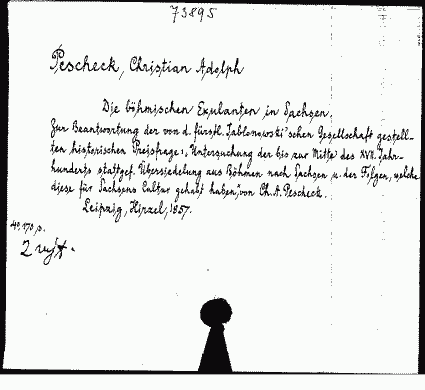 73895
Pescheck, Christian Adolph
Die böhmischen Exulanten in Sachsen.
Zur Beantwortung der von d. fürstl. Jablonowski'schen Gesellschaft gestell-
ten historischen Preisfrage: „Untersuchung der bis zur Mitte des XVII. Jahr-
hunderts stattgef. Übersiedelung aus Böhmen nach Sachsen u. der Folgen, welche
diese für Sachsens Cultur gehabt haben," von Ch. A. Pescheck.
Leipzig, Hirzel, 1857.
4°, 170, s.
2